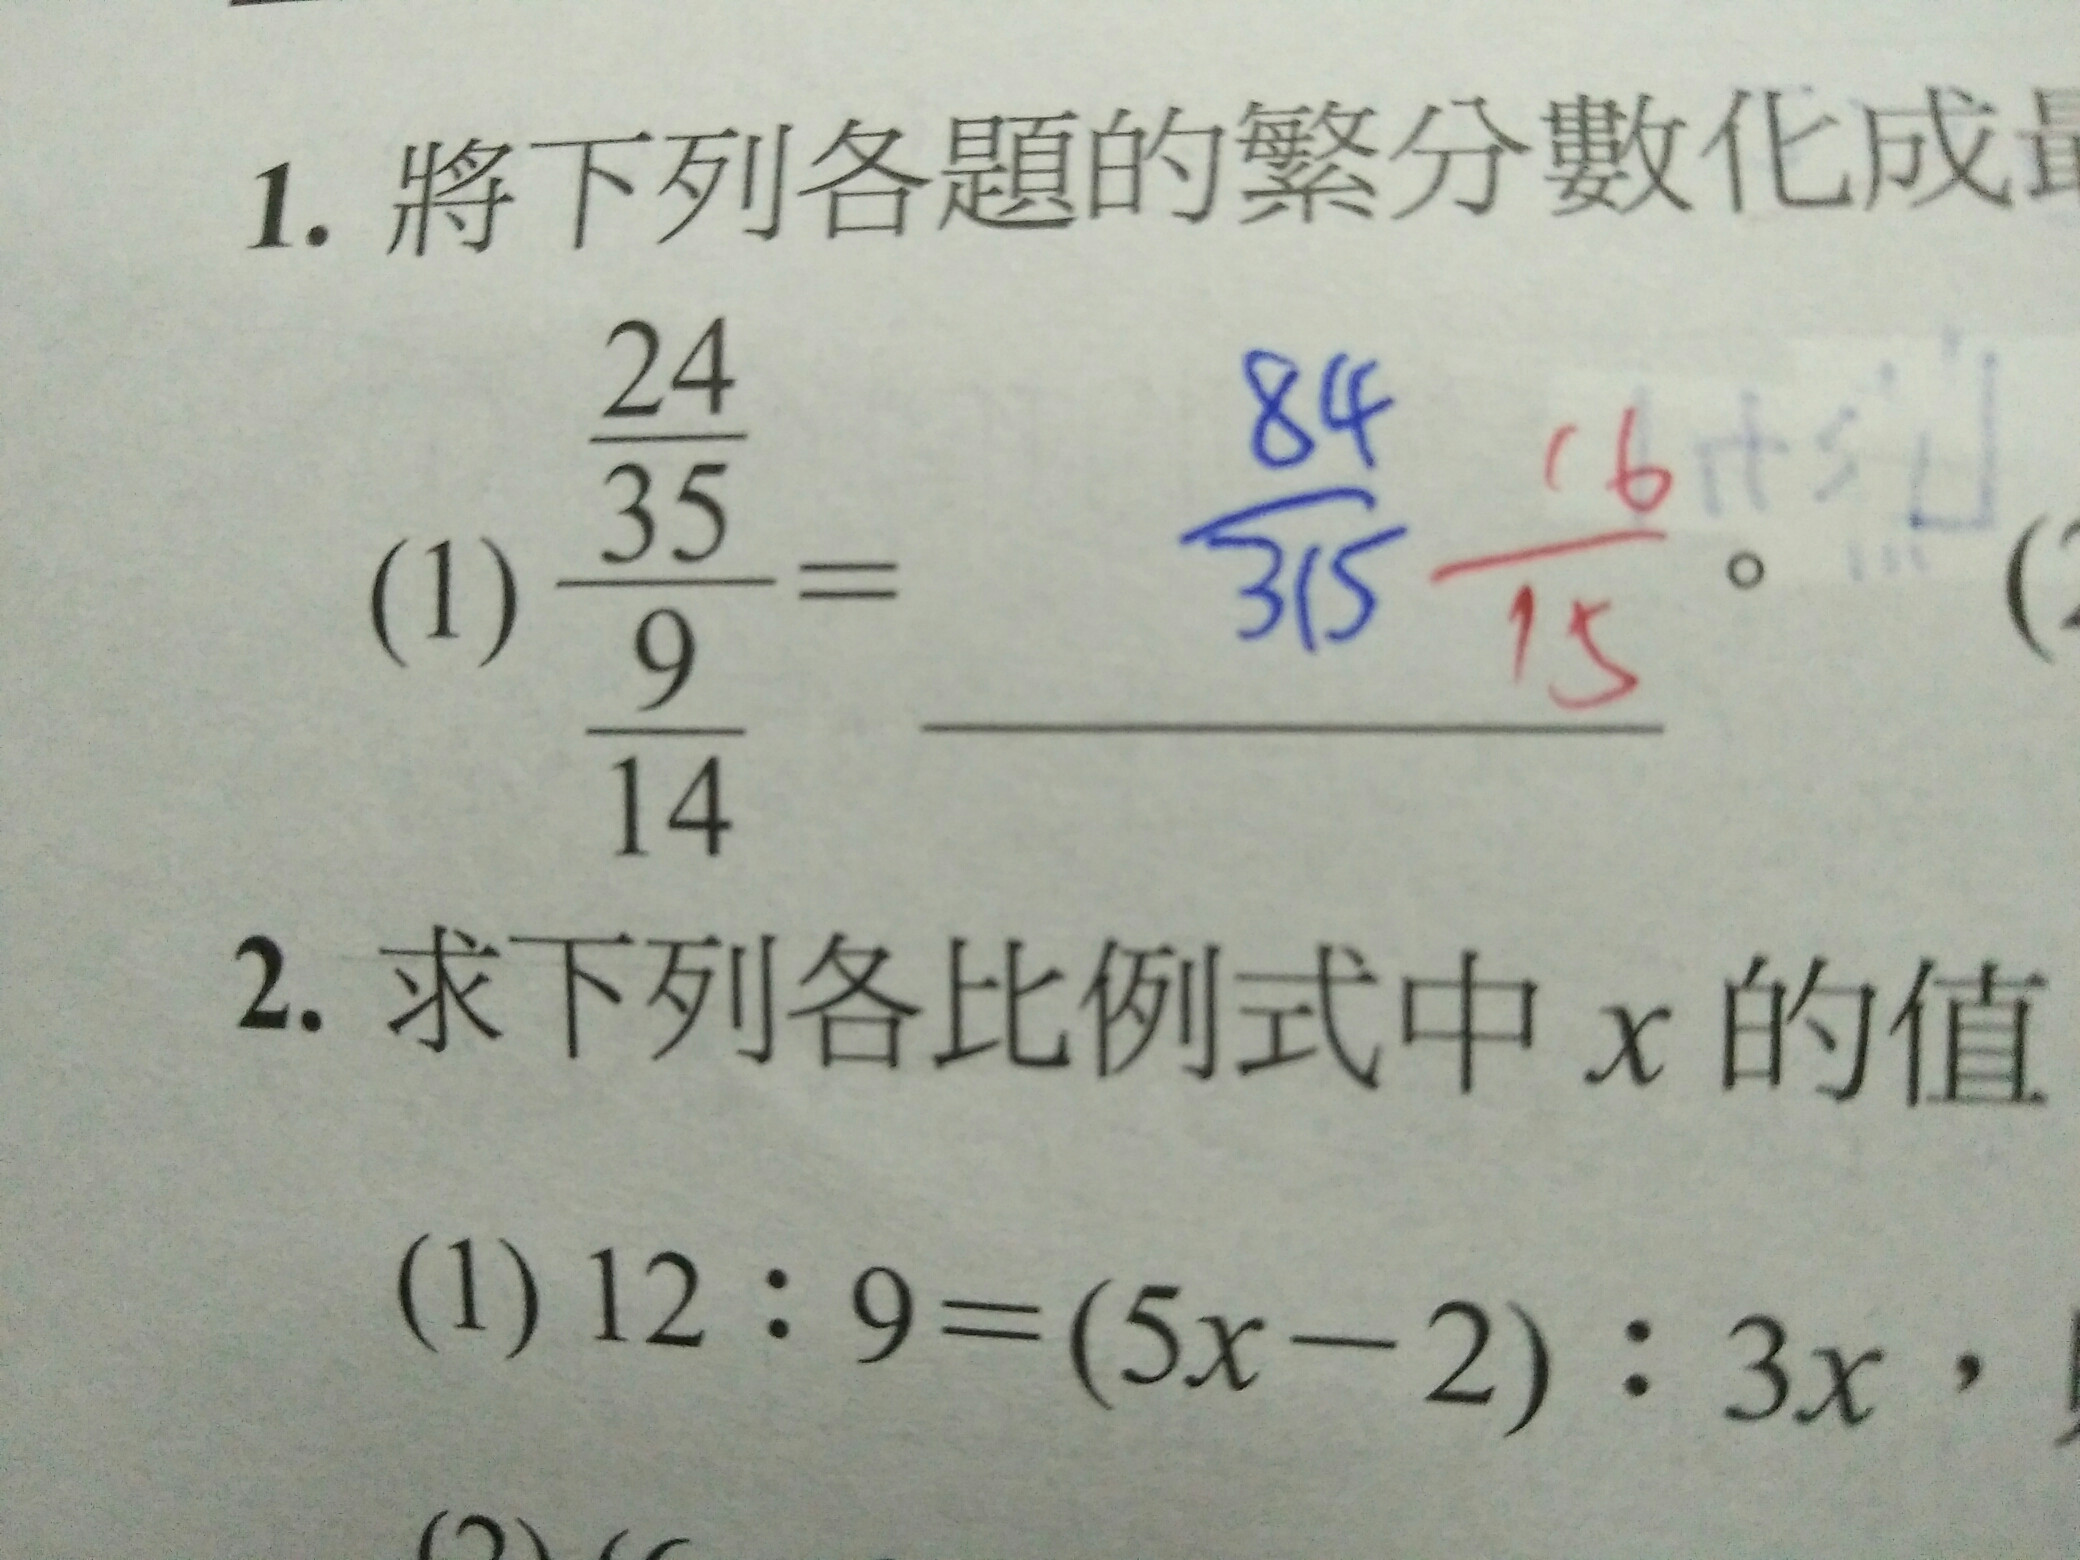 1. 將下列各題的繁分數化成最
24
35
(1) = 84/315 16/15 。 (2
9
14
2. 求下列各比例式中 x 的值
(1) 12：9＝(5x－2)：3x，
(2) (6